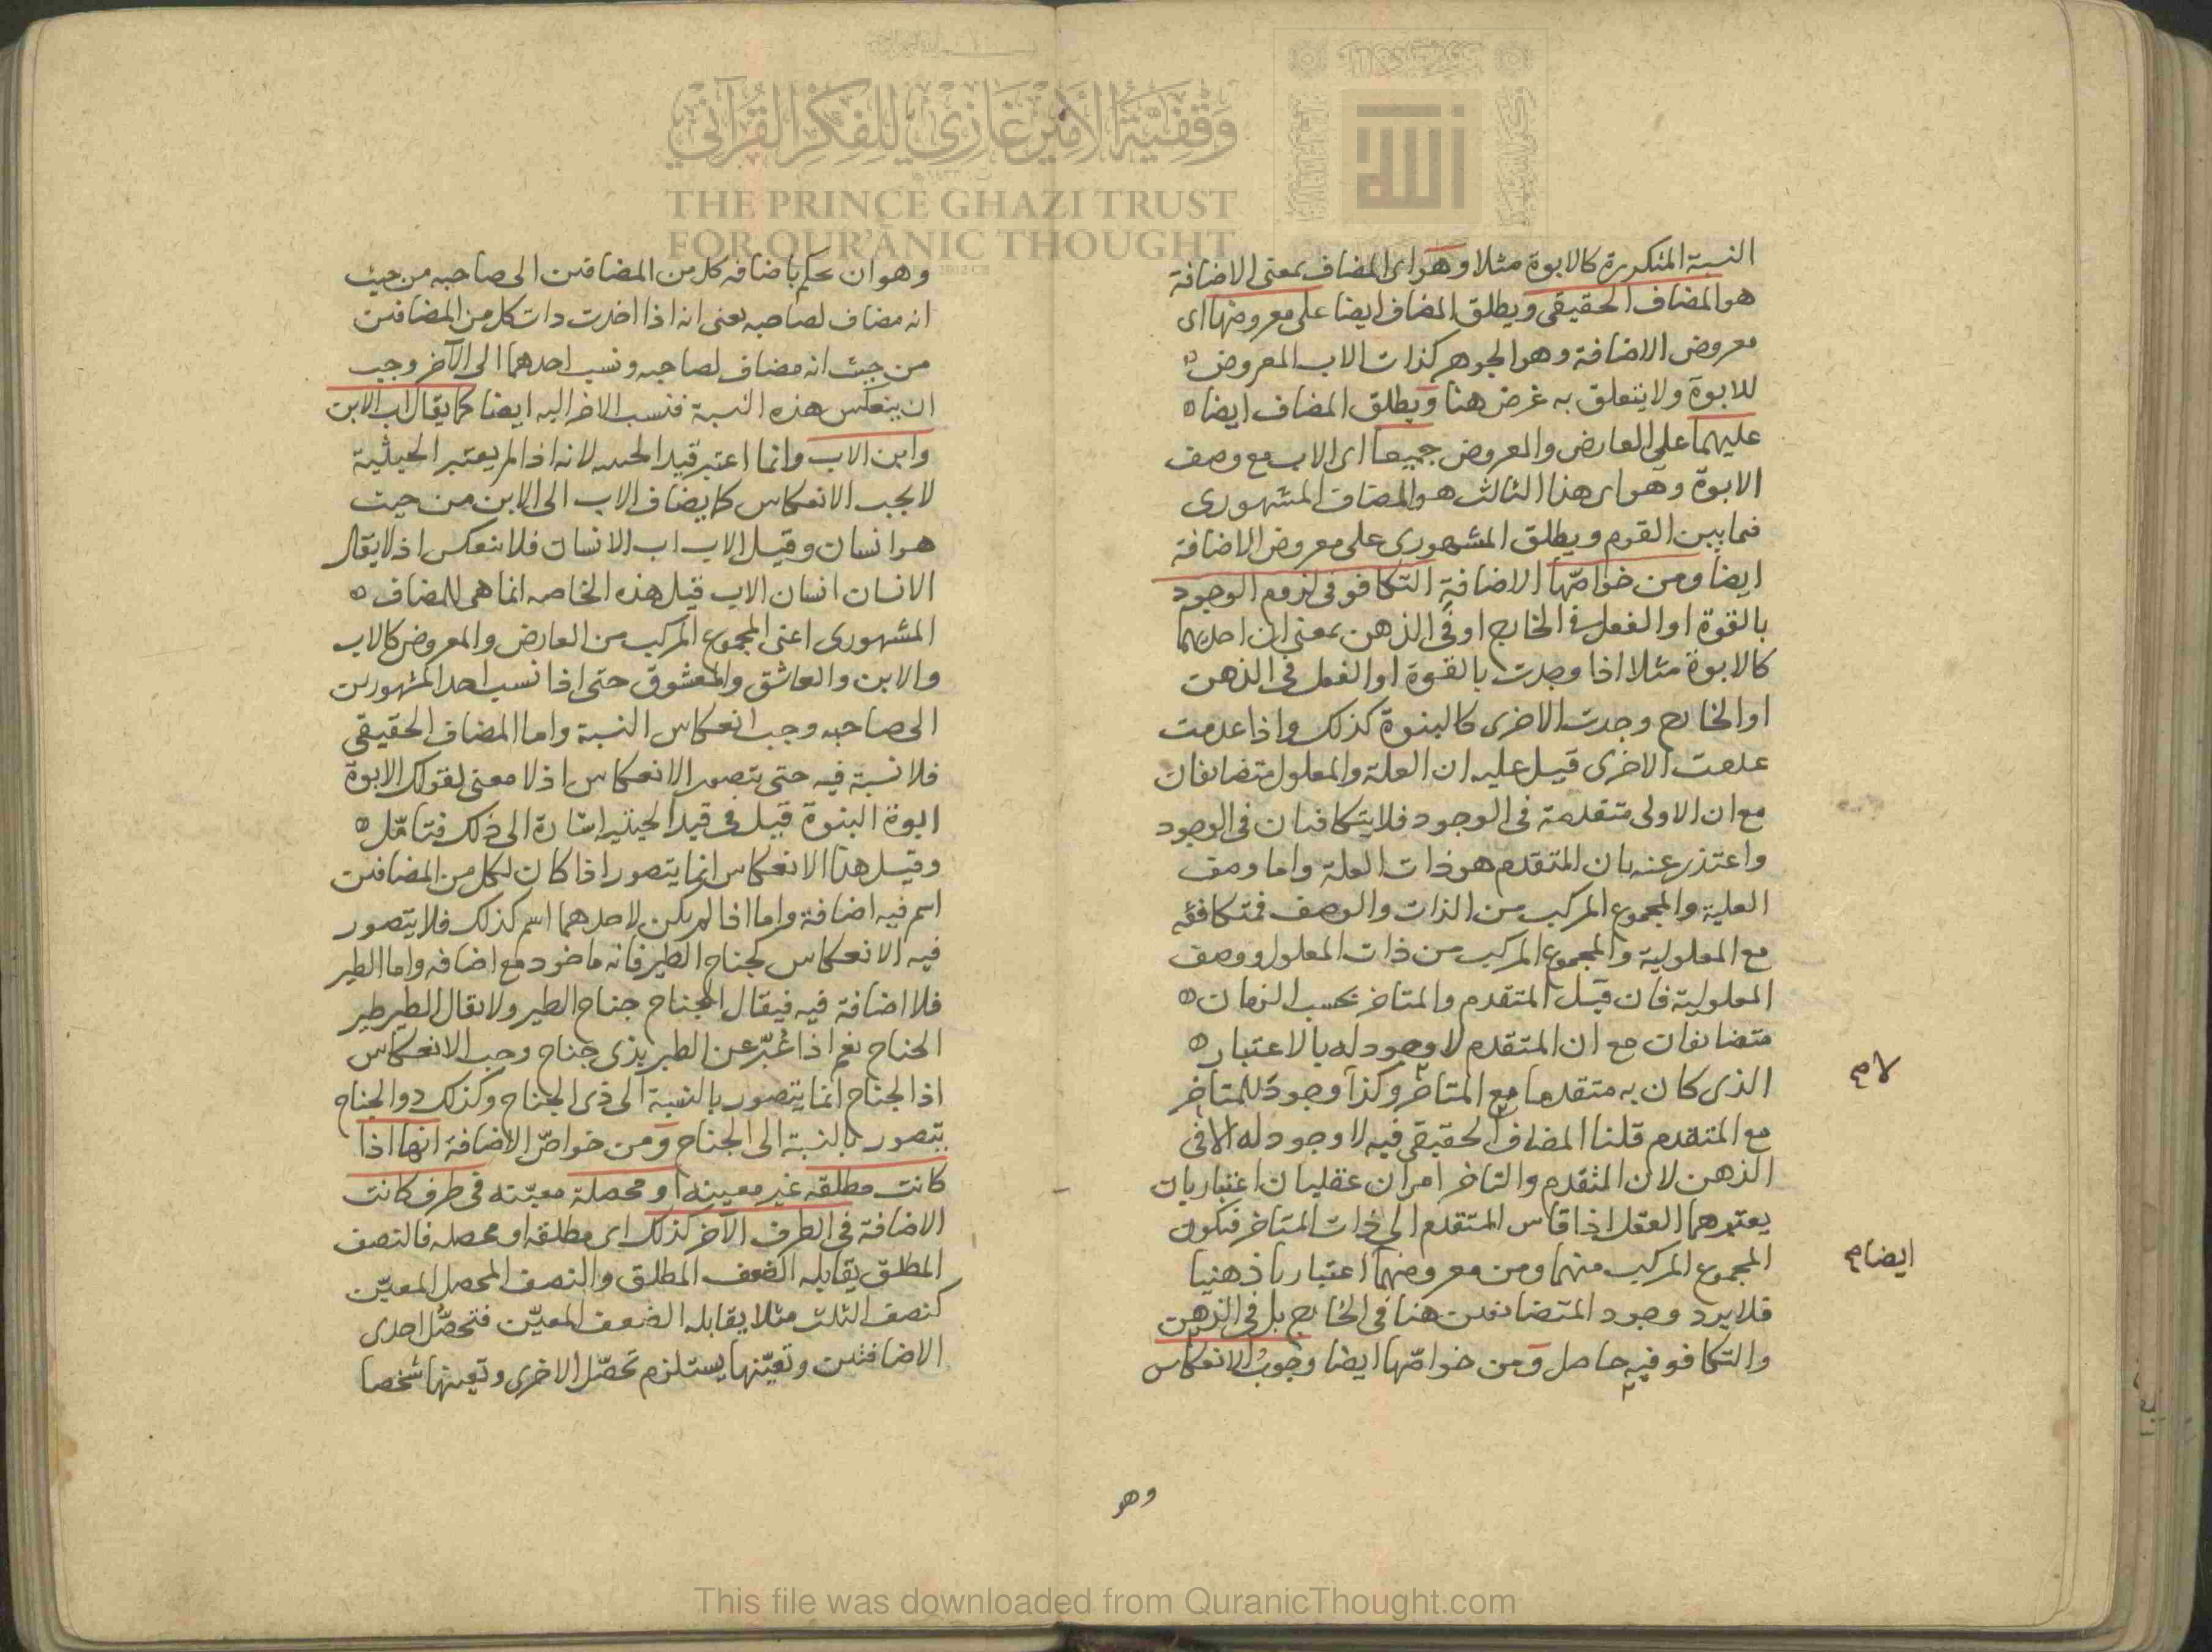 النسبة المتكررة كالابوة مثلا وهو اى المضاف بمعنى الاضافة
هو المضاف الحقيقى ويطلق المضاف ايضا على معروضها اى
معروض الاضافة وهو الجوهر كذات الاب المعروض
للابوة ولا يتعلق به غرض هنا ويطلق المضاف ايضا
عليهما على العارض والمعروض جميعا اى الاب مع وصف
الابوة وهو اى هذا الثالث هو المضاف المشهورى
فيما بين القوم ويطلق المشهورى على معروض الاضافة
ايضا ومن خواصّها الاضافة التكافو فى لزوم الوجود
بالقوة او الفعل فى الخارج او فى الذهن بمعنى ان احديهما
كالابوة مثلا اذا وجدت بالقوة او الفعل فى الذهن
او الخارج وجدت الاخرى كالبنوة كذلك واذا عدمت
عدمت الاخرى قيل عليه ان العلة والمعلول متضايفان
مع ان الاولى متقدمة فى الوجود فلا يتكافيان فى الوجود
واعتذر عنه بان المتقدم هو ذات العلة واما وصف
العلية والمجموع المركب من الذات والوصف فمتكافئه
مع المعلولية والمجموع المركب من ذات المعلول ووصف
المعلولية فان قيل المتقدم والمتاخر بحسب الزمان
متضايفان مع ان المتقدم لا وجود له بالاعتبار
الذى كان به متقدما مع المتاخر وكذا وجود للمتاخر
لا م
مع المتقدم قلنا المضاف الحقيقى فيه لا وجود له الا فى
الذهن لان المتقدم والتاخر امران عقليان اعتباريان
يعتبرهما العقل اذا قاس المتقدم الى ذات المتاخر فيكون
المجموع المركب منهما ومن معروضهما اعتباريا ذهنيا
ايضا م
فلا يرد وجود المتضايفين هنا فى الخارج بل فى الذهن
والتكافو فيه حاصل ومن خواصّها ايضا وجوب الانعكاس
وهو
وهو ان يحكم باضافه كل من المضافين الى صاحبه من حيث
انه مضاف لصاحبه يعنى انه اذا اخذت ذات كل من المضافين
من حيث انه مضاف لصاحبه ونسب احدهما الى الآخر وجب
ان ينعكس هذه النسبة فنسب الاخر اليه ايضا كما يقال اب الابن
وابن الاب وانما اعتبر قيد الحيثيه لانه اذا لم يعتبر الحيثية
لا يجب الانعكاس كما يضاف الاب الى الابن من حيث
هو انسان وقيل الاب اب الانسان فلا ينعكس اذ لا يقال
الانسان انسان الاب قيل هذه الخاصه انما هى للمضاف
المشهورى اعنى المجموع المركب من العارض والمعروض كالاب
والابن والعاشق والمعشوق حتى اذا نسب احد المشهورين
الى صاحبه وجب انعكاس النسبة واما المضاف الحقيقى
فلا نسبة فيه حتى يتصور الانعكاس اذ لا معنى لقولك الابوة
ابوة البنوة قيل فى قيد الحيثيه اشارة الى ذلك فتامّل
وقيل هذا الانعكاس انما يتصور اذا كان لكل من المضافين
اسم فيه اضافة واما اذا لم يكن لاحدهما اسم كذلك فلا يتصور
فيه الانعكاس كجناح الطير فانه ماخوذ مع اضافه واما الطير
فلا اضافة فيه فيقال الجناح جناح الطير ولا يقال الطير طير
الجناح نعم اذا عُبّر عن الطير بذى جناح وجب الانعكاس
اذ الجناح انما يتصور بالنسبة الى ذى الجناح وكذلك ذو الجناح
يتصور بالنسبة الى الجناح ومن خواصّ الاضافة انها اذا
كانت مطلقه غير معينه او محصلة معيّنه فى طرف كانت
الاضافة فى الطرف الآخر كذلك اى مطلقه او محصله فالنصف
المطلق يقابله الضعف المطلق والنصف المحصل المعيّن
كنصف الثلث مثلا يقابله الضعف المعيّن فتحصّل احدى
الاضافتين وتعيّنها يستلزم تحصّل الاخرى وتعينها شخصا
وقفية الأمير غازي للفكر القرآني
THE PRINCE GHAZI TRUST
FOR QUR'ĀNIC THOUGHT
This file was downloaded from QuranicThought.com